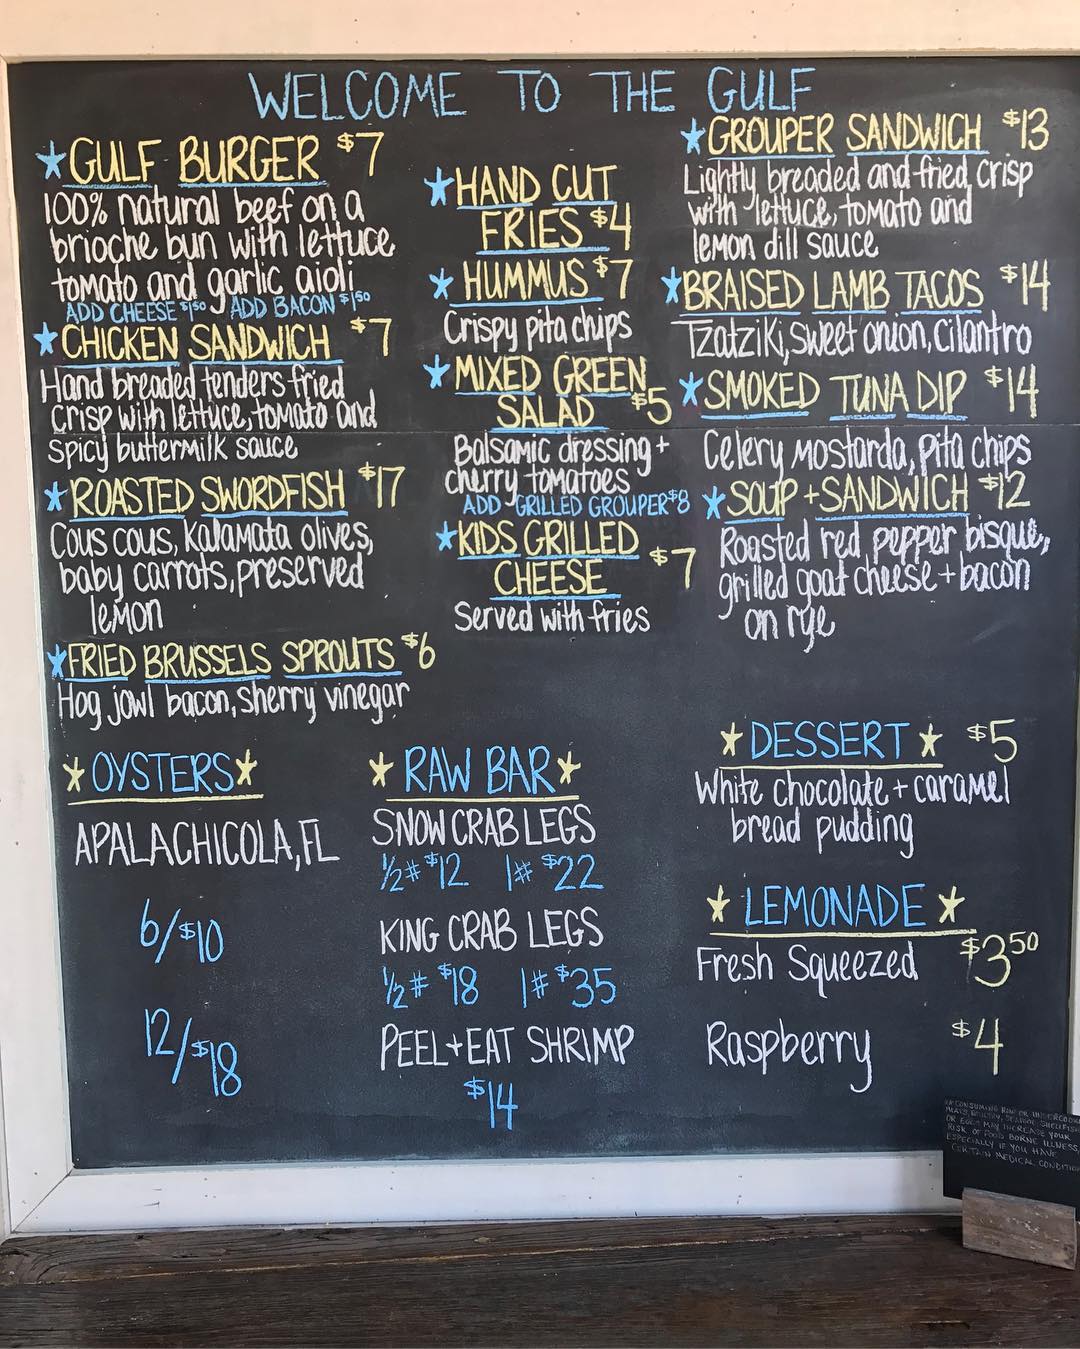 WELCOME TO THE GULF
★GULF BURGER $7
100% natural beef on a
brioche bun with lettuce
tomato and garlic aioli
ADD CHEESE $1.50 ADD BACON $1.50
★CHICKEN SANDWICH $7
Hand breaded tenders fried
crisp with lettuce, tomato and
spicy buttermilk sauce
★ROASTED SWORDFISH $17
Cous cous, Kalamata olives,
baby carrots, preserved
lemon
★FRIED BRUSSELS SPROUTS $6
Hog jowl bacon, sherry vinegar
★HAND CUT
FRIES $4
★HUMMUS $7
Crispy pita chips
★MIXED GREEN
SALAD $5
Balsamic dressing +
cherry tomatoes
ADD GRILLED GROUPER $8
★KIDS GRILLED
CHEESE $7
Served with fries
★GROUPER SANDWICH $13
Lightly breaded and fried crisp
with lettuce, tomato and
lemon dill sauce
★BRAISED LAMB TACOS $14
Tzatziki, sweet onion, cilantro
★SMOKED TUNA DIP $14
Celery mostarda, pita chips
★SOUP + SANDWICH $12
Roasted red pepper bisque,
grilled goat cheese + bacon
on rye
★OYSTERS★
APALACHICOLA, FL
6/$10
12/$18
★RAW BAR★
SNOW CRAB LEGS
½# $12 1# $22
KING CRAB LEGS
½# $18 1# $35
PEEL+EAT SHRIMP
$14
★DESSERT★ $5
White chocolate + caramel
bread pudding
★LEMONADE★
Fresh Squeezed $3.50
Raspberry $4
CONSUMING RAW OR
MEATS, POULTRY, SEAFOOD, SHELLFISH
OR EGGS MAY INCREASE YOUR
RISK OF FOOD BORNE ILLNESS,
ESPECIALLY IF YOU HAVE
CERTAIN MEDICAL